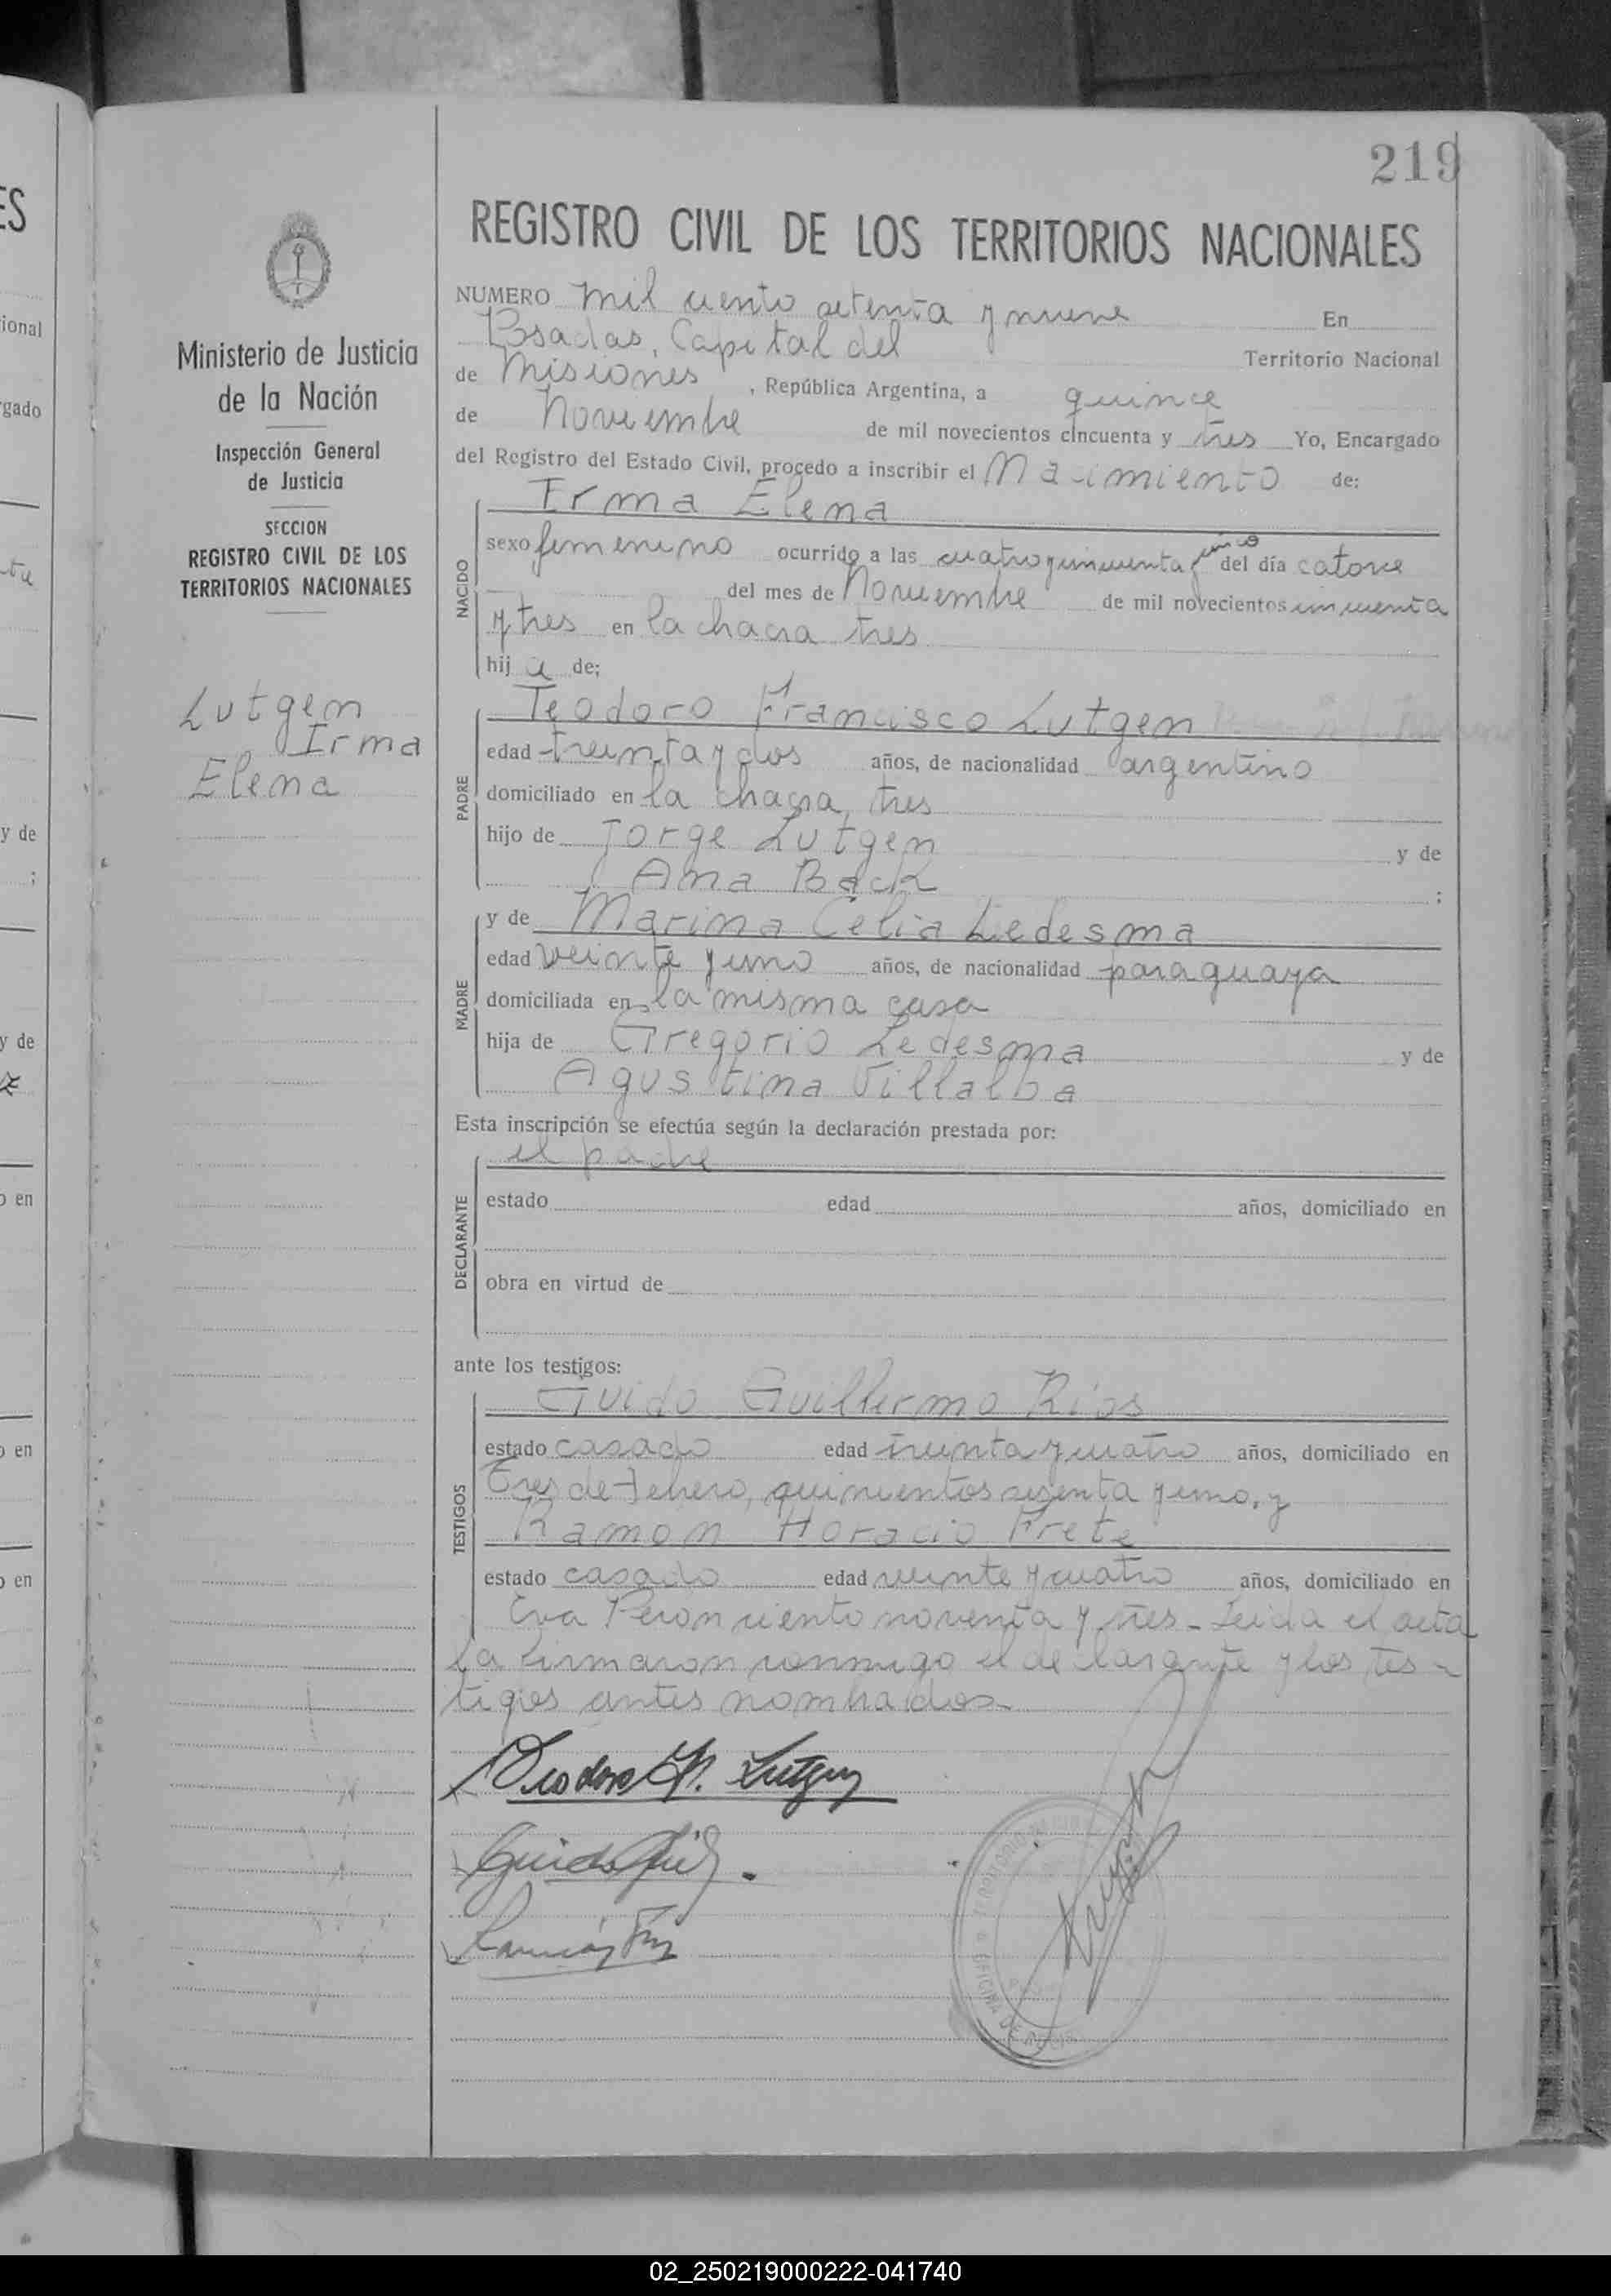 219
REGISTRO CIVIL DE LOS TERRITORIOS NACIONALES
Ministerio de Justicia
de la Nación
Inspección General
de Justicia
SECCION
REGISTRO CIVIL DE LOS
TERRITORIOS NACIONALES
Lutgen
Irma
Elena
NUMERO mil ciento setenta y nueve En
Posadas, Capital del Territorio Nacional
de Misiones, República Argentina, a quince
de Noviembre de mil novecientos cincuenta y tres Yo, Encargado
del Registro del Estado Civil, procedo a inscribir el Nacimiento de:
Irma Elena
NACIDO
sexo femenino ocurrido a las cuatro y cincuenta y cinco del día catorce
del mes de Noviembre de mil novecientos cincuenta
y tres en la chacra tres
hij a de;
Teodoro Francisco Lutgen
PADRE
edad treinta y dos años, de nacionalidad argentino
domiciliado en la chacra tres
hijo de Jorge Lutgen y de
Ana Back ;
y de Marina Celia Ledesma
MADRE
edad veinte y uno años, de nacionalidad paraguaya
domiciliada en la misma casa
hija de Gregorio Ledesma y de
Agustina Villalba
Esta inscripción se efectúa según la declaración prestada por:
el padre
DECLARANTE
estado edad años, domiciliado en
obra en virtud de
ante los testigos:
Guido Guillermo Rios
TESTIGOS
estado casado edad treinta y cuatro años, domiciliado en
Tres de Febrero, quinientos sesenta y uno, y
Ramón Horacio Frete
estado casado edad veinte y cuatro años, domiciliado en
Eva Perón ciento noventa y tres - Leida el acta
la firmaron conmigo el declarante y los tes-
tigos antes nombrados-
Teodoro F. Lutgen
Guido Rios
Ramón
OFICINA DE
ional
gado
y de
y de
o en
o en
o en
02_250219000222-041740